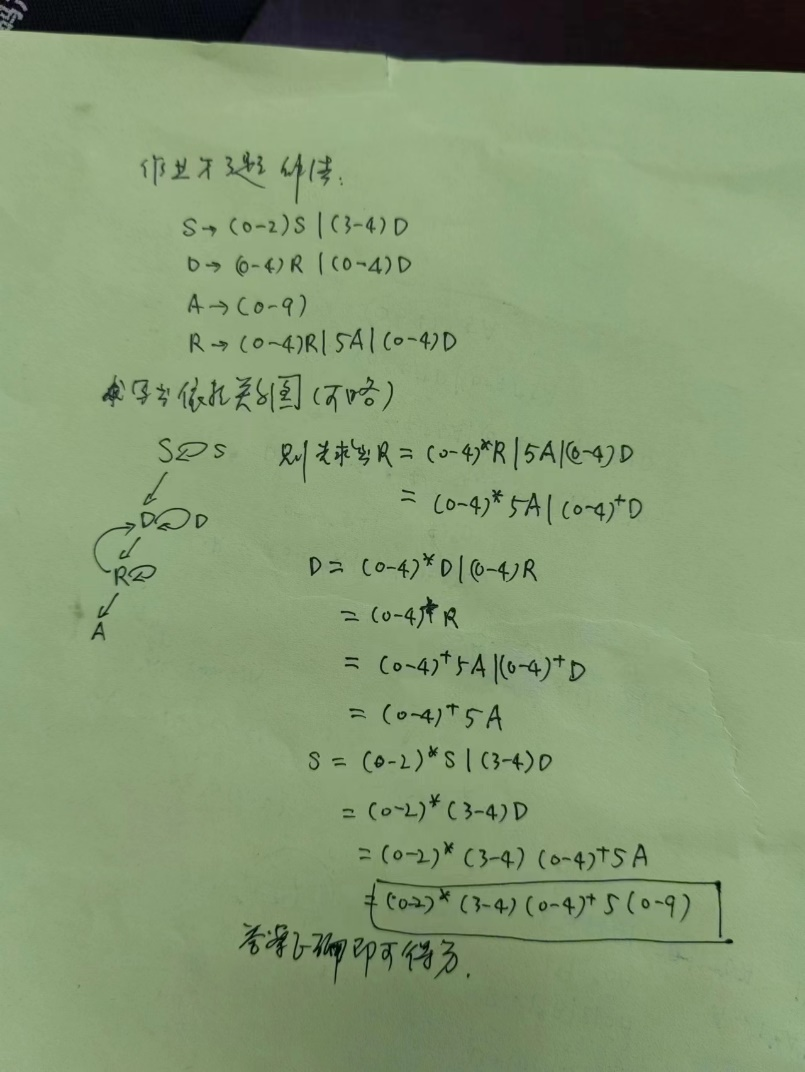 作业2题解法:
S→(0-2)S|(3-4)D
D→(0-4)R|(0-4)D
A→(0-9)
R→(0-4)R|5A|(0-4)D
写出依赖关系图(可略)
S S
D D
R
A
则先求出R=(0-4)*R|5A|(0-4)D
=(0-4)*5A|(0-4)+D
D=(0-4)*D|(0-4)R
=(0-4)+R
=(0-4)+5A|(0-4)+D
=(0-4)+5A
S=(0-2)*S|(3-4)D
=(0-2)*(3-4)D
=(0-2)*(3-4)(0-4)+5A
=(0-2)*(3-4)(0-4)+5(0-9)
答案正确即可得分.